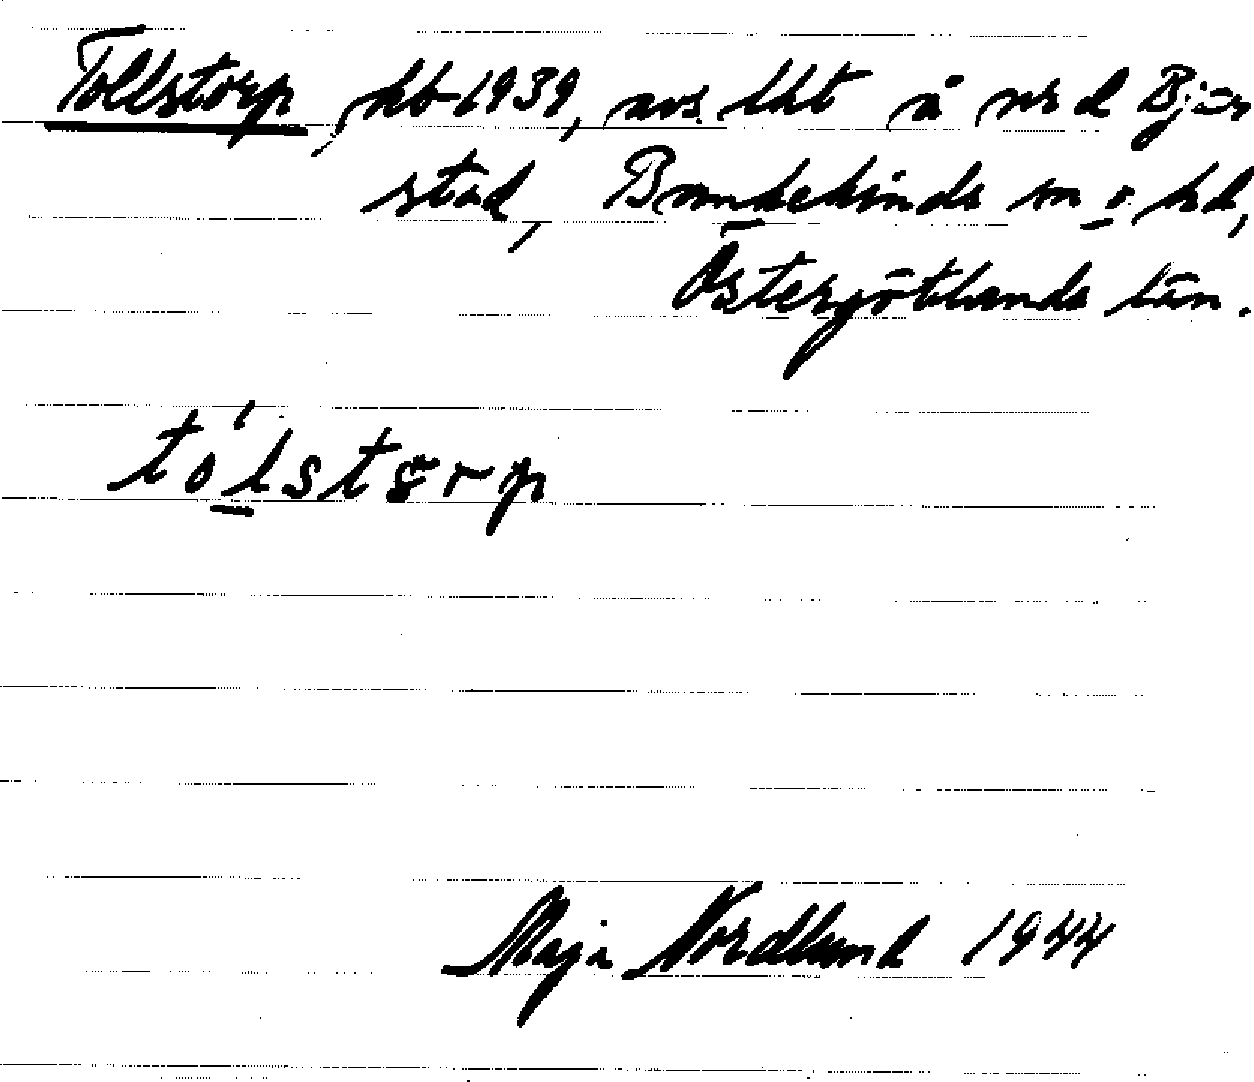 Tollstorp, kb 1939, avs. lht å nr 2 Bjär
stad, Brunnebinds sn o. hd,
Östergötlands län.
tól̠stɵrp
Maja Nordlund 1944